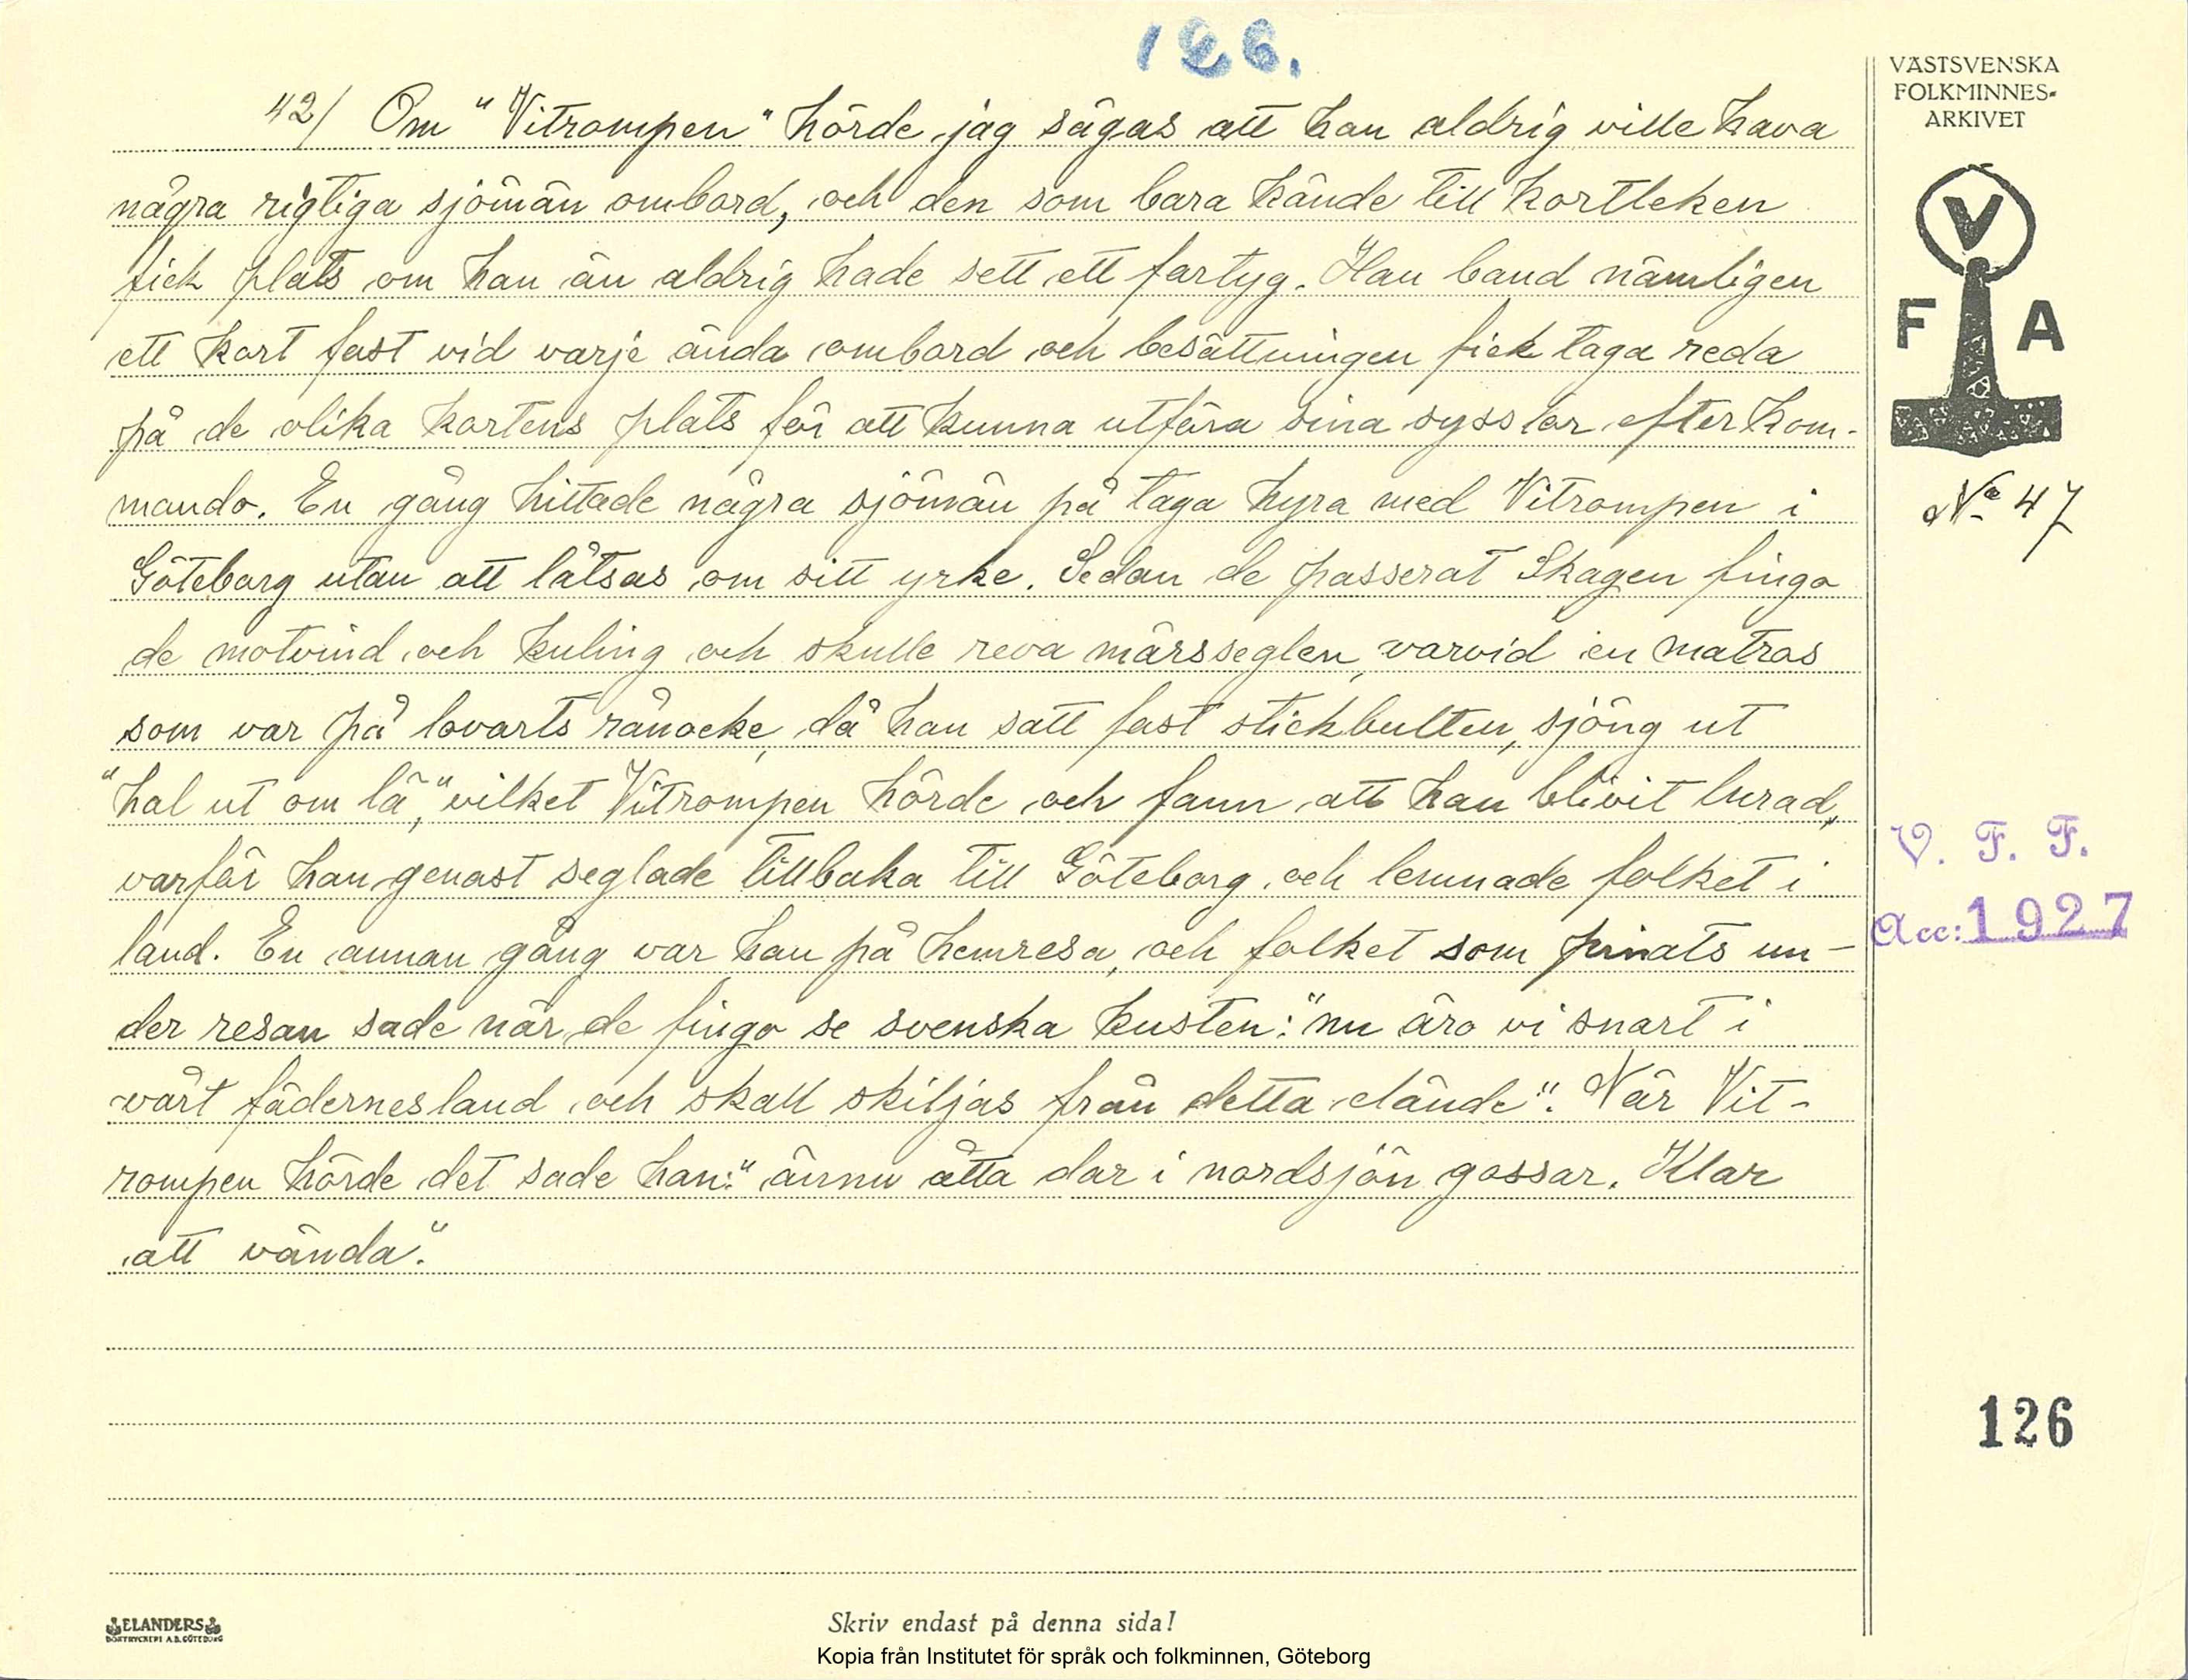 126.
VÄSTSVENSKA
FOLKMINNES-
ARKIVET
V
F A
No 47
V. F. F.
Acc: 1927
126
42/ Om "Vitrompen" hörde jag sägas att han aldrig ville hava
några rigtiga sjömän ombord, och den som bara kände till kortleken
fick plats om han än aldrig hade sett ett fartyg. Han band nämligen
ett kort fast vid varje ända ombord och besättningen fick taga reda
på de olika kortens plats för att kunna utföra sina sysslor efter kom-
mando. En gång hittade några sjömän på taga hyra med Vitrompen i
Göteborg utan att låtsas om sitt yrke. Sedan de passerat Skagen fingo
de motvind och kuling och skulle reva märsseglen, varvid en matros
som var på lovarts rånocke, då han satt fast stickbulten, sjöng ut
"hal ut om lä," vilket Vitrompen hörde och fann att han blivit lurad,
varför han genast seglade tillbaka till Göteborg och lemnade folket i
land. En annan gång var han på hemresa, och folket som pinats un-
der resan sade när de fingo se svenska kusten: "nu äro vi snart i
vårt fädernesland och skall skiljas från detta elände". När Vit-
rompen hörde det sade han: "ännu åtta dar i nordsjön gossar. Klar
att vända".
ELANDERS
BOKTRYCKERI A.B. GÖTEBORG
Skriv endast på denna sida!
Kopia från Institutet för språk och folkminnen, Göteborg